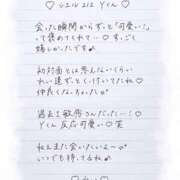 ♡ シエル 212 Yくん ♡
会った瞬間からずっと「可愛い！」
って褒めてくれて… ♡ すっごく
嬉しかったです♪
初対面とは思えないくらい
れい達すぐに打ちとけて
仲良くなっちゃった♡
過去1敏感さんだった…！♡
Yくん 反応可愛い…♡ 笑
ねぇまた会いたいよ〜♡
いつでも待ってるね♪